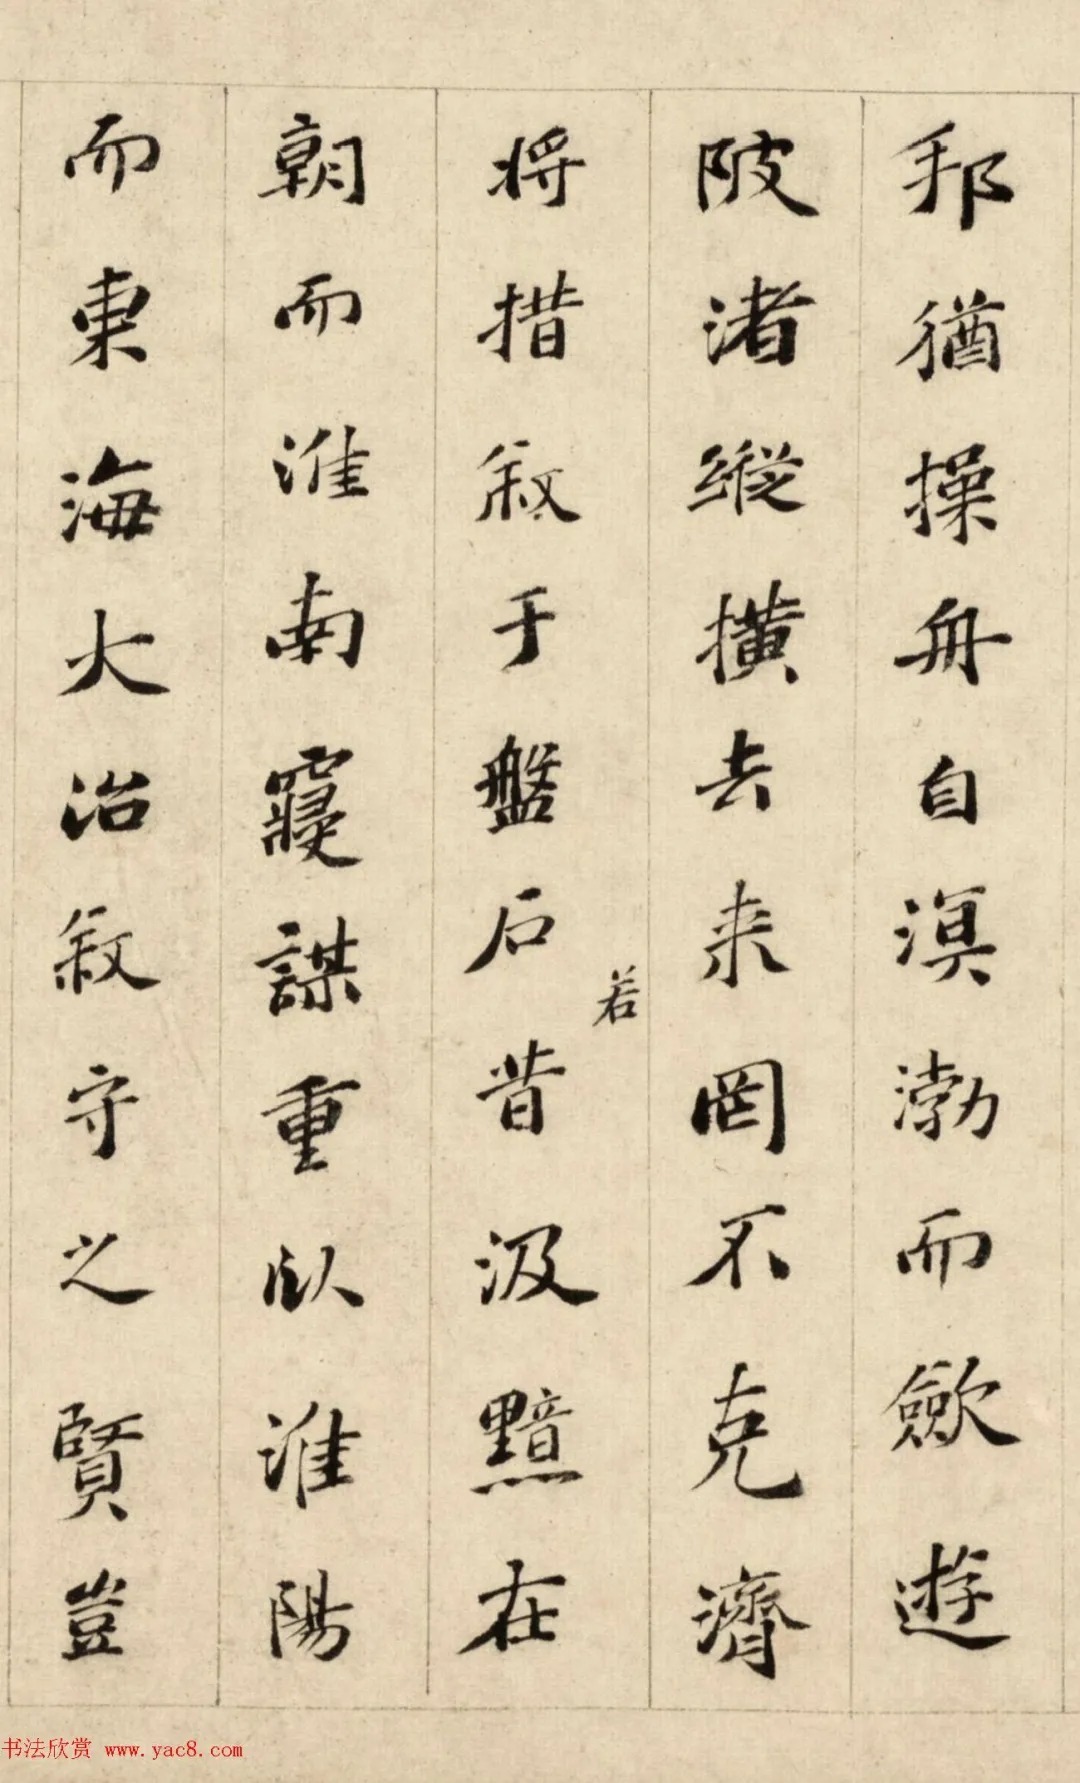 邦猶操舟自溟渤而歛遊
陂渚縱橫去来罔不克濟
若
将措叙于盤石昔汲黯在
朝而淮南寢謀重臥淮陽
而東海大治叙守之賢豈
书法欣赏 www.yac8.com